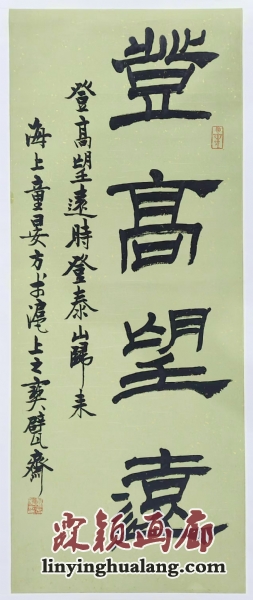 登高望遠
登高望遠時登泰山歸來
海上童晏方书滬上之奭甓齋
霖颖画廊
linyinghualang.com